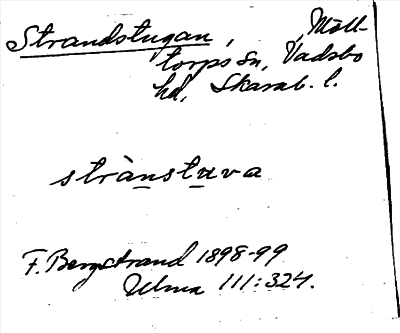 Strandstugan, , Möll-
torps sn, Vadsbo
hd, Skarab. l.
strànstuva
F. Bergstrand 1898-99
Ulma 111:324.